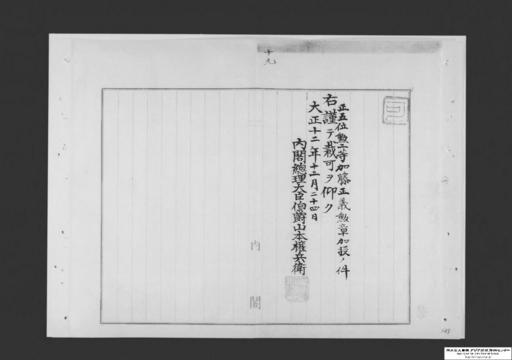 十九
正五位勲六等加藤正義勲章加授ノ件
右謹テ裁可ヲ仰ク
大正十二年十二月二十四日
内閣総理大臣伯爵山本権兵衛
内閣